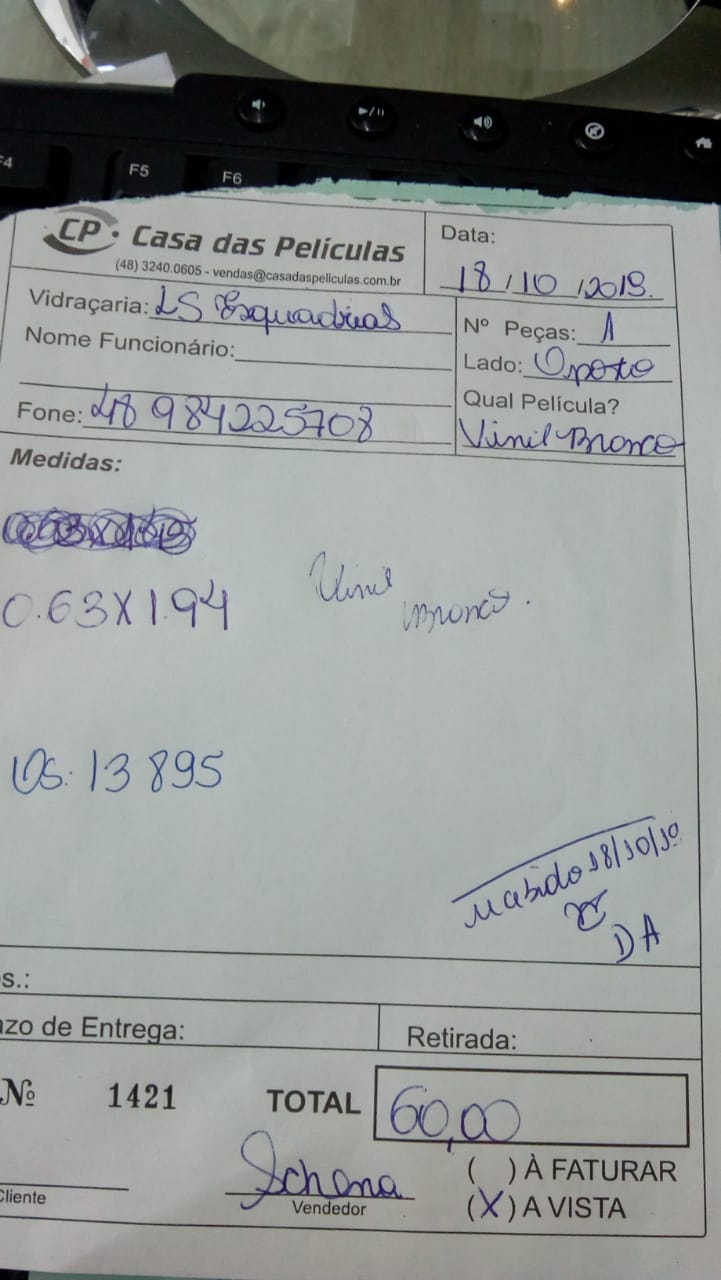 F4
F5
F6
CP • Casa das Películas
(48) 3240.0605 - vendas@casadaspeliculas.com.br
Data:
18/10/2019.
Vidraçaria: LS Esquadrias
Nome Funcionário:
Fone: 48 984225708
Nº Peças: 1
Lado: Oposto
Qual Película?
Vinil Branco
Medidas:
0.63X1.94
Vinil
Branco.
OS: 13895
18/10/19
DA
s.:
azo de Entrega:
Retirada:
Nº 1421
TOTAL 60,00
Cliente
Vendedor
( ) À FATURAR
(X) A VISTA